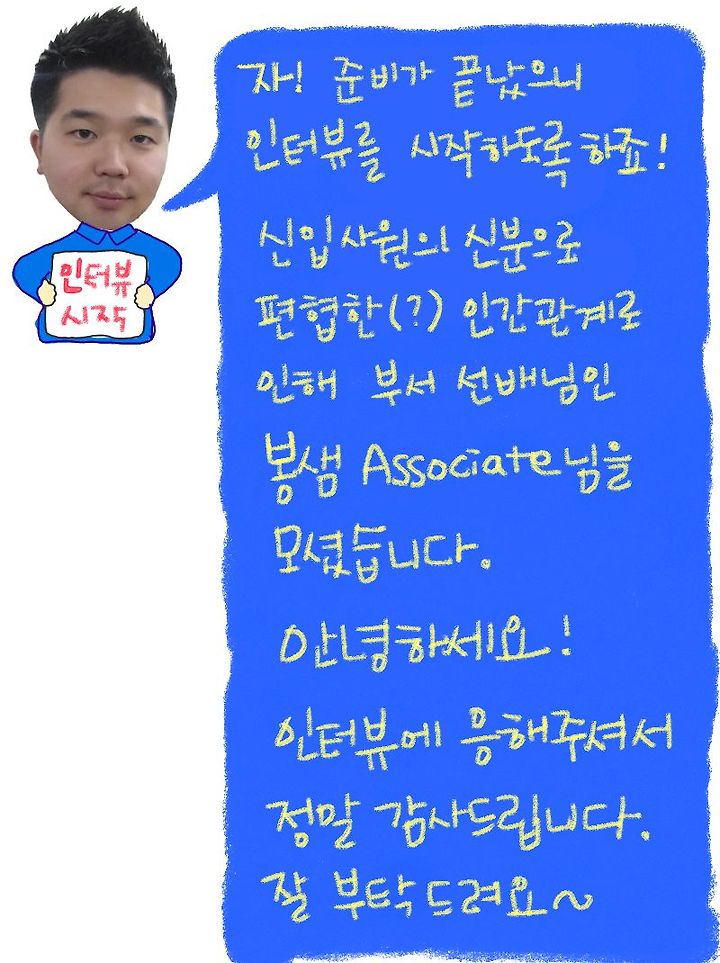 자! 준비가 끝났으니
인터뷰를 시작하도록하죠!
인터뷰
시작
신입사원의 신분으로
편협한(?) 인간관계로
인해 부서 선배님인
봉샘 Associate님을
모셨습니다.
안녕하세요!
인터뷰에 응해주셔서
정말 감사드립니다.
잘 부탁드려요~